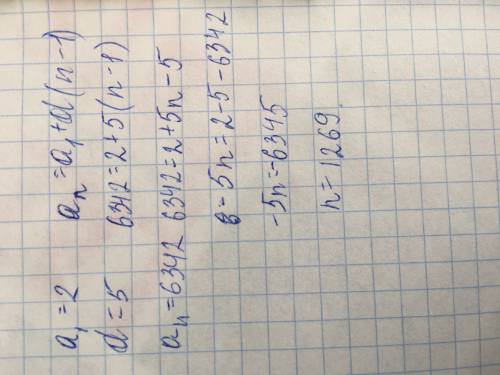 a₁ = 2 aₙ = a₁ + d(n-1)
d = 5 6342 = 2 + 5(n-1)
aₙ = 6342 6342 = 2 + 5n - 5
-5n = 2 - 5 - 6342
-5n = -6345
n = 1269